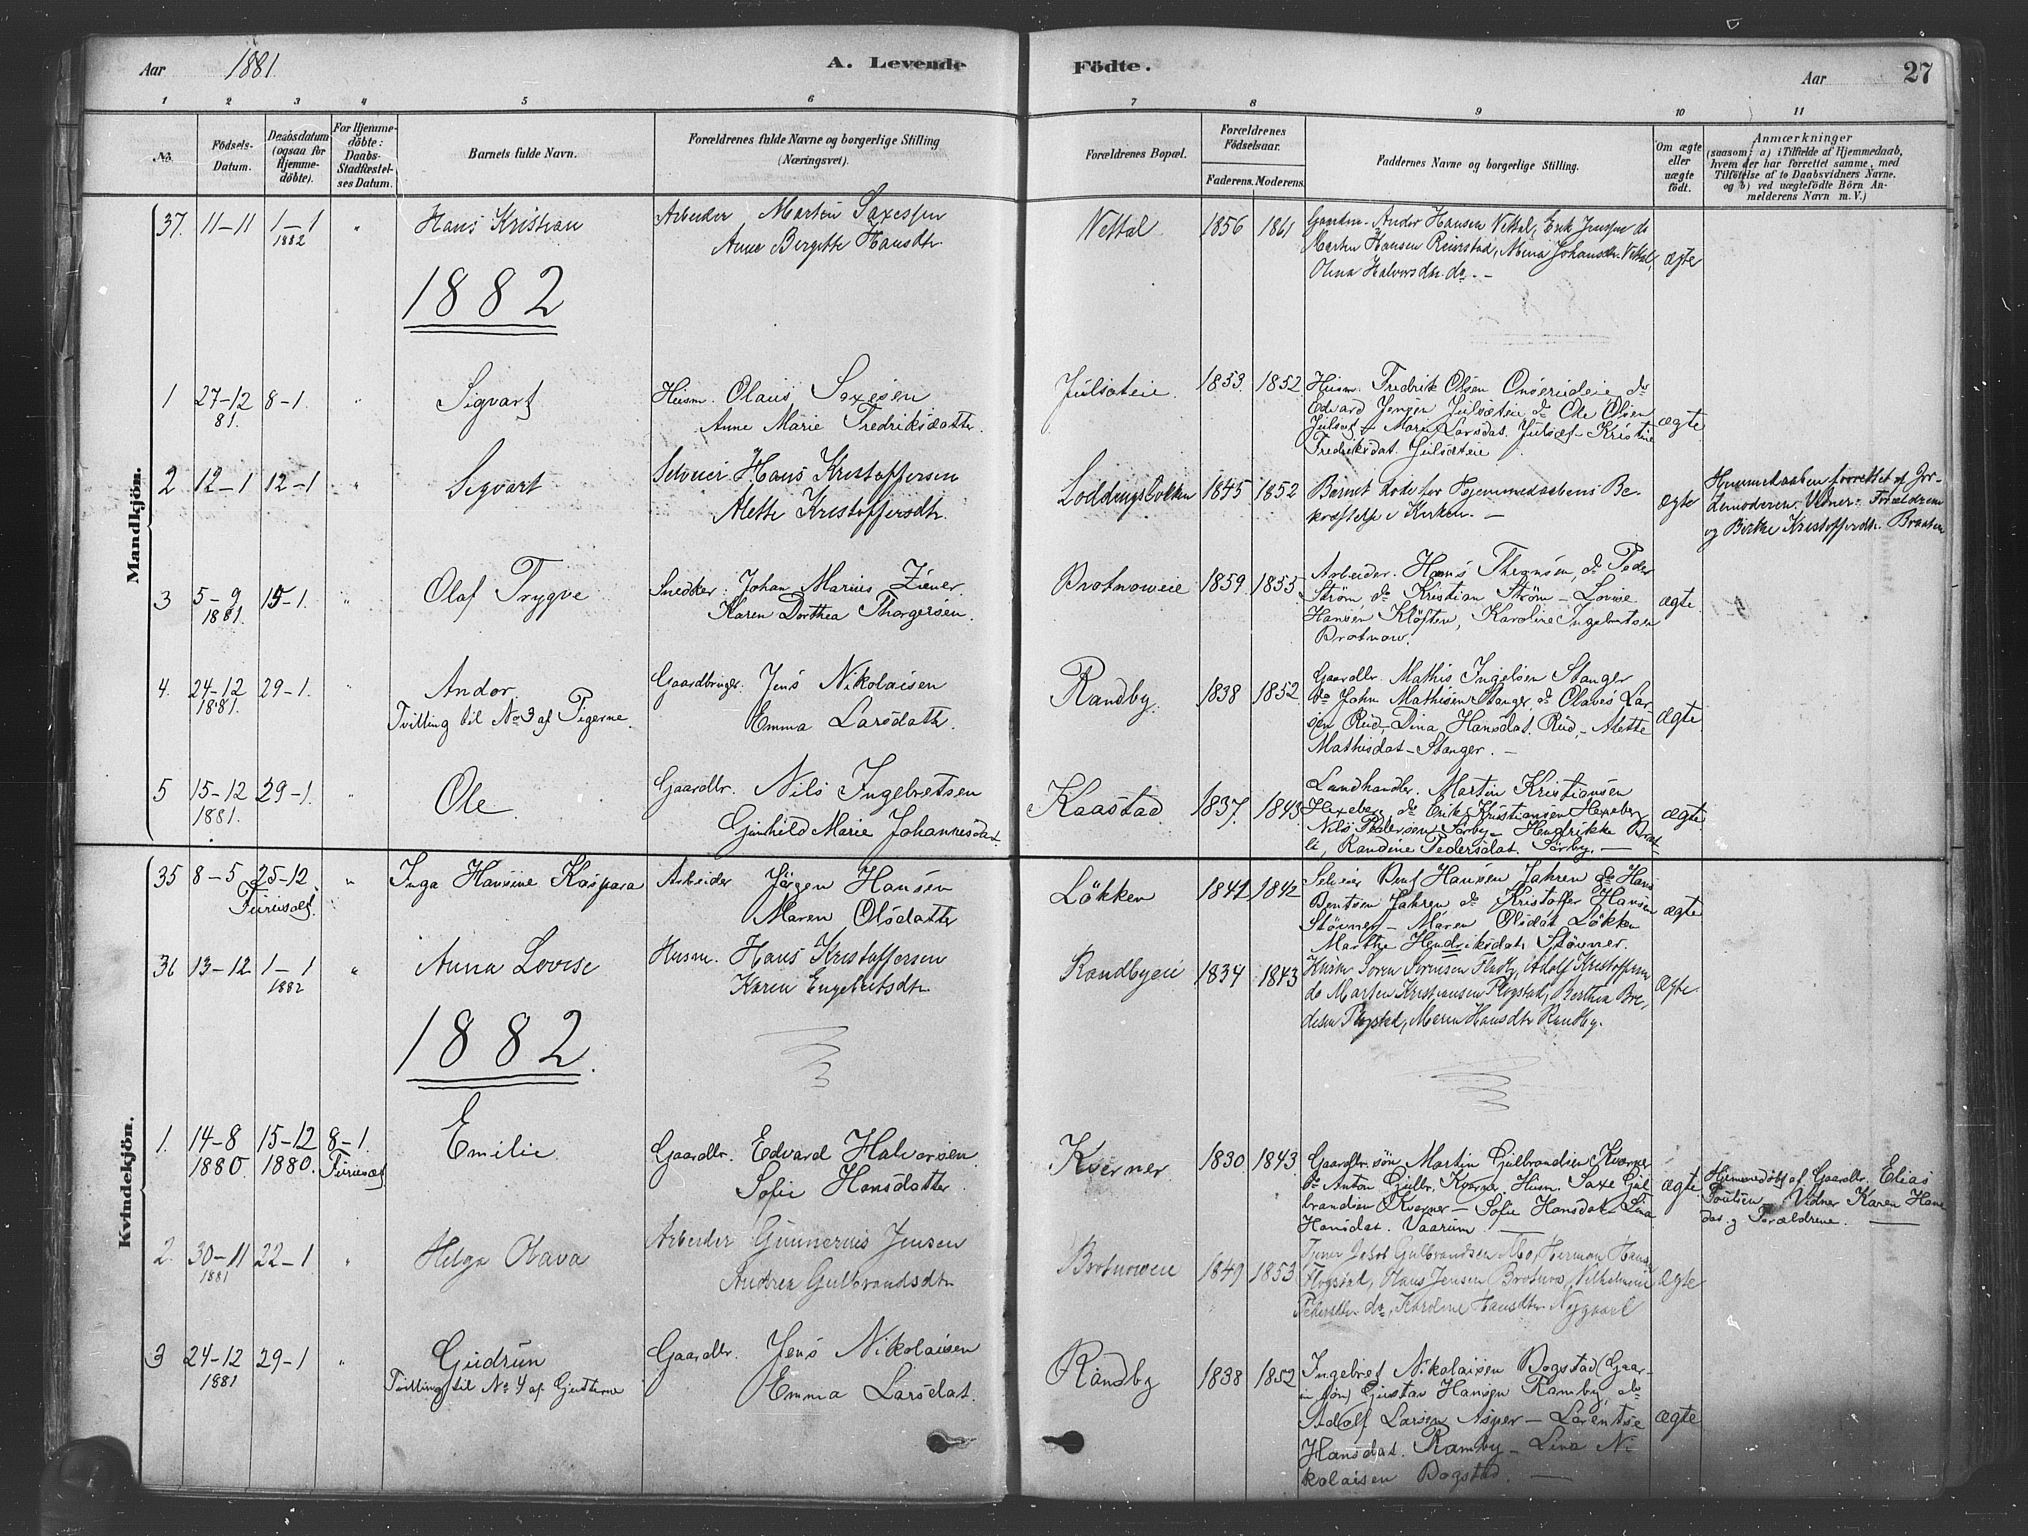 Aar 1881 A. Levende Födte. Aar 27
1 2 3 4 5 6 7 8 9 10 11
No. Födsels-Datum. Daabsdatum (ogsaa for Hjemme-döbte). For Hjemme-döbte: Daabs-Stadfæstel-ses Datum. Barnets fulde Navn. Forældrenes fulde Navne og borgerlige Stilling (Næringsvei). Forældrenes Bopæl. Forældrenes Födselsaar. Faderens. Moderens. Faddernes Navne og borgerlige Stilling. Om ægte eller uægte födt. Anmærkninger
(saasom: a) i Tilfælde af Hjemmedaab,
hvem der har forrettet samme, med
Tilföielse af to Daabsvidners Navne.
og b) ved uægtefödte Börn An-
melderens Navn m. V.)
Mandkjön.
37. 11-11 1-1 1882 " Hans Kristian
Arbeider Marten Saxesen
Anne Birgitte Hansdtr
Nettal 1856 1861
Gaardm. Andor Hansen Nettal, Erik Jensen do
Marten Hansen Reinstad, Mina Johansdtr Nettal,
Olina Halvorsdtr. do. -
ægte
1882
1 27-12 81. 8-1. " Sigvart
Husm. Olaus Saxesen
Anne Marie Fredriksdatter
Julsæteie 1853. 1852
Husm. Fredrik Olsen Onserudeie do
Edvard Jensen Julsæteie do Ole Olsen
Julsæt - Maren Larsdat. Julsæt - Kristine
Fredriksdat. Julsæteie
ægte
2 12-1 12-1 " Sigvart
Selveier Hans Kristoffersen
Mette Kristoffersdtr.
1845 1852
Barnet døde før Hjemmedaabens Be-
kræftelse i Kirken. -
ægte
Hjemmedaaben forrettet af Jor-
demoderen. Vidner: Forældrene
og Birthe Kristoffersdtr. Braaten
3 5-9 1881. 15-1. " Olaf Trygve
Snedker. Johan Marius Ziener.
Karen Dorthea Thorgersen.
Brotnoweie 1859 1855.
Arbeider. Hans Thronsen, do Peder
Strøm, do Kristian Strøm - Lovise
Hansen Kløften, Karoline Ingebretsen
Brotnow.
ægte.
4. 24-12 1881. 29-1. " Andor.
Tvilling til No 3 af Pigerne.
Gaardbruger. Jens Nikolaisen
Emma Larsdatter.
Randby. 1838 1852
Gaardbr. Mathis Ingelsen Stanger
do John Mathisen Stanger do Olaves Lar-
sen Rud, - Dina Hansdat. Rud, - Mette
Mathisdat - Stanger. -
ægte
5 15-12 1881. 29-1. " Ole.
Gaardbr. Nils Ingebretsen
Gunhild Marie Johannesdat.
Kaastad. 1837. 1843.
Landhandler. Martin Kristiansen
Haxeberg, do Erik Kristiansen Haxeberg
Nils Pedersen Sørby - Hendrikke Brat-
li, Randine Pedersdat. Sørby. -
ægte
Kvindekjön.
35 8-5 25-12 Furuset. " Inga Hansine Kaspara
Arbeider Jørgen Hansen
Maren Olsdatter
Løkken 1841 1842
Selveier Bent Hansen Jahren do Hans
Bentsen Jahren do Kristoffer Hansen
Støvner - Maren Olsdat Løkken
Marthe Hendriksdat. Støvner.
ægte
36 13-12 1-1 1882 " Anna Lovise
Husm. Hans Kristoffersen
Karen Engebretsdtr
Randbyeie 1834 1843
Adolf Kristoffersen
do Marten Kristiansen Plogstad, Berthea Bre-
desen Plogstad, Maren Hansdtr Randby.
ægte.
1882.
1. 14-8 1880. 15-12 1880. 8-1. Furuset Emilie
Gaardbr. Edvard Halvorsen.
Sofie Hansdatter.
Kverner 1830 1843
Gaardbr.søn Martin Gulbrandsen Kverner
do Anton Gulbr. Kverner, Husm. Saxe Gul-
brandsen Kverner - Sofie Hansdat. - Lina
Hansdat. Vaarum. -
ægte.
Hjemmedöbt af Gaardbr. Elias
Poulsen. Vidner Karen Hans-
dat. og Forældrene. -
2. 30-11 1881 22-1 " Helga Olava
Arbeider Gunnerius Jensen
Andrea Gulbrandsdtr
Brotnoweie 1849 1853
Jakob Gulbrandsen Mo, Herman Hans.
Flogstad, Hans Jensen Brotnow, Vilhelmine
Pedersdtr. do, Karoline Hansdtr. Nygaard
ægte
3 24-12 1881 29-1 " Gudrun
Tvilling til No 4 af Gutterne
Gaardbr. Jens Nikolaisen
Emma Larsdat.
Randby 1838 1852
Ingebret Nikolaisen Bogstad (Gaar-
søn) Gustav Hansen Ramby, do
Adolf Larsen Asper - Lorentse
Hansdat. Ramby - Lina Ni-
kolaisen Bogstad. -
ægte